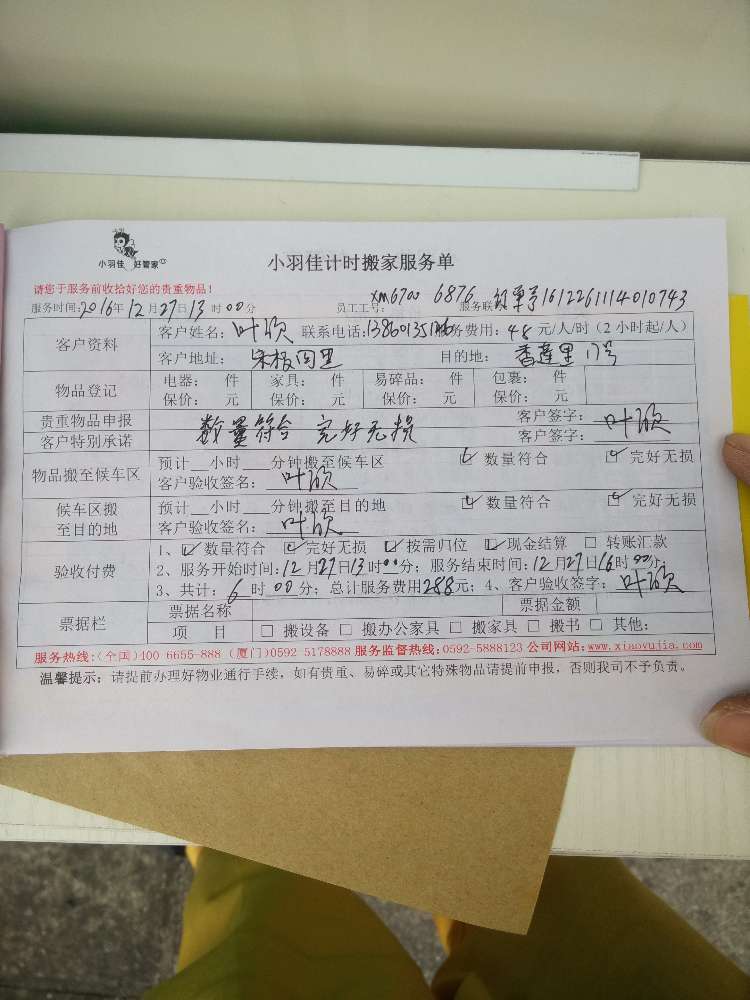 小羽佳 好管家
小羽佳计时搬家服务单
请您于服务前收拾好您的贵重物品！
服务时间:2016年12月27日13时00分 员工工号: xm6700 6876 服务联 订单号1612261114010743
客户资料
客户姓名: 叶欣 联系电话: 服务费用: 48 元/人/时（2 小时起/人）
客户地址: 目的地: 香莲里17号
物品登记
电器: 件 家具: 件 易碎品: 件 包裹: 件
保价: 元 保价: 元 保价: 元 保价: 元
贵重物品申报
客户特别承诺
数量符合 完好无损
客户签字: 叶欣
客户签字:
物品搬至候车区
预计__小时___分钟搬至候车区 ☑ 数量符合 ☑ 完好无损
客户验收签名: 叶欣
候车区搬
至目的地
预计__小时___分钟搬至目的地 ☑ 数量符合 ☑ 完好无损
客户验收签名: 叶欣
验收付费
1、☑ 数量符合 ☑ 完好无损 ☑ 按需归位 ☑ 现金结算 □ 转账汇款
2、服务开始时间: 12月27日13时00分; 服务结束时间: 12月27日16时00分,
3、共计: 6 时00分; 总计服务费用288元; 4、客户验收签字: 叶欣
票据栏
票据名称 票据金额
项 目 □ 搬设备 □ 搬办公家具 □ 搬家具 □ 搬书 □ 其他:
服务热线:(全国)400-6655-888 (厦门)0592 5178888 服务监督热线:0592-5888123 公司网站:www.xiaoyujia.com
温馨提示: 请提前办理好物业通行手续，如有贵重、易碎或其它特殊物品请提前申报，否则我司不予负责。